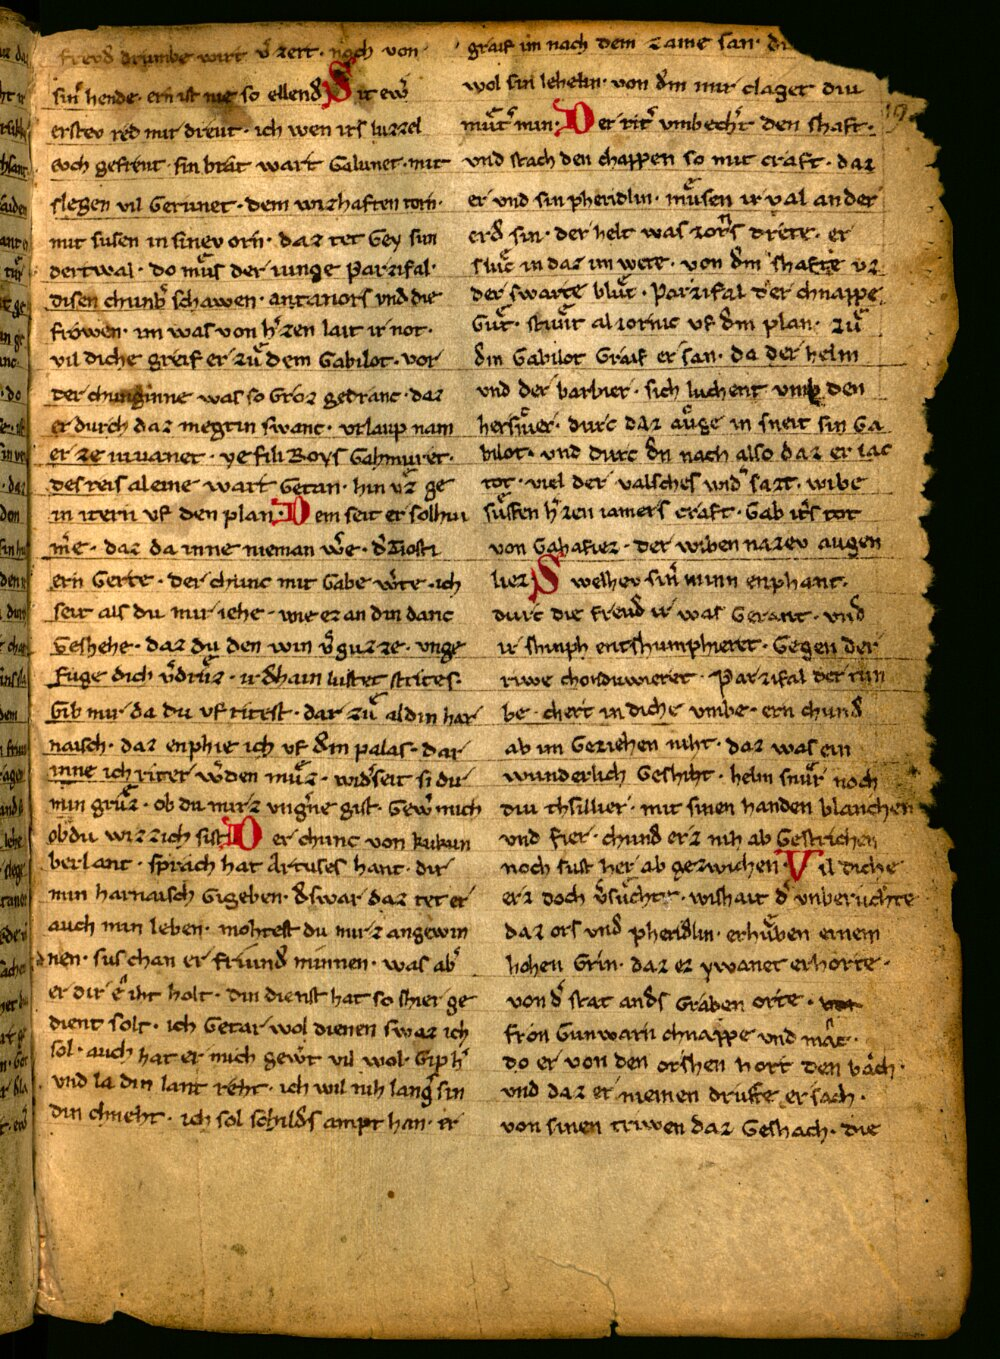 freud drumbe wirt v̄ zert · noch von
sin̄ hende · ern ist nie so ellend̄ Sit ew̄
ersteu red mir dreut · ich wen irs luzzel
euch gefreut · sin brat wart Galunet · mit
slegen vil Gerunet · dem wizhaften torn ·
mit susen in sineu orn · daz tet Gey sun
dertwal · do muͤs der iunge Parzifal ·
disen chunb̄ schawen · antanors vnd die
frowen · im was von h̄zen lait ir not ·
vil diche greif er zuͤ dem Gabilot · vor
der chunginne was so Groz gedranc · daz
er durch daz megtin swanc · vrlaup nam
er ze iwanet · ye fili Roys Gahmuret ·
des reis aleine wart Getan · hin vz ge
in itern vf den plan · Dem seit er solhiu
m̄e · daz da inne nieman w̄e · d̄ Tiosti
ern Gerte · der chunc mit Gabe w̄te · ich
seit als du mir iehe · wie ez an din danc
Geshehe · daz du den win v̄guzze · vnge
fuge dich v̄druͤz · ir d̄hain lustet strites ·
Gib mir da du vf ritest · dar zuͤ al din har
naisch · daz enphie ich vf d̄m palas · dar
inne ich riter w̄den muͤz · wid̄seit si du
min gruͤz · ob du mirz vngn̄e gist · Gew̄ mich
ob du wizzich sist Der chunc von kukun
berlant · sprach hat Artuses hant · dir
min harnaisch Gigeben · d̄swar daz tet er
auch min leben · mohtest du mirz angewin
nen · sus chan er friund minnen · was ab̄
er dir ê iht holt · din dienst hat so shier ge
dient solt · ich Getar wol dienen swaz ich
sol · auch hat er mich gew̄t vil wol · Gip h̄
vnd la din lant reht · ich wil nih lanḡ sin
din chneht · ich sol schild̄s ampt han · er
graif im nach dem zaime san ·
wol sin lehelin · von d̄m mir claget diu
muͤt̄ min · Der rit̄ vmbech̄t den shaft ·
vnd stach den chappen so mit craft · daz
er vnd sin pheridlin · muͤsen ir val an der
erd̄ sin · der helt was zorns drete · er
sluͤc in daz im wete · von d̄m shafte vz
der swarte bluͤt · Parzifal der chnappe
Guͤt · stuͤnt al zornic vf d̄m plan · zuͤ
d̄m Gabilot Graif er san · da der helm
vnd der barbier · sich luchent vmb den
hersnier · durc daz auͤge in sneit sin Ga
bilot · vnd durc d̄n nach also daz er lac
tot · viel der valsches vnd̄ sazt · wibe
suͤften h̄zen iamers craft · Gab it̄s tot
von Gahafiez · der wiben nazeu augen
liez Swelheu sin̄ minn enphant ·
durc die freud̄ ir was Gerant · vnd
ir shimph entshumphieret · Gegen der
riwe chonduwieret · Parzifal der tun
be · chert in diche vmbe · ern chund̄
ab im Geziehen niht · daz was ein
wunderlich Geshiht · helm snuͤr noch
diu thsillier · mit sinen handen blanchen
vnd fier · chund erz nih ab Gestrichen
noch sust her ab gezwichen · Vil diche
erz doch v̄suͤchte · wishait d̄ vnberuͤchte
daz ors vnd pheridlin · erhuͤben einem
hohen Grin · daz ez ywanet erhorte ·
von d̄ stat and̄s Graben orte ·
fron Gunwarn chnappe vnd mâc ·
do er von den orshen hort den bâch ·
vnd daz er niemen druffe er sach ·
von sinen triwen daz Geshach · die